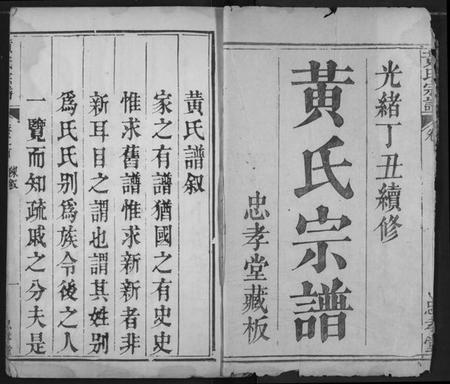 光緒丁丑續修
黃氏宗譜
忠孝堂藏板
黃氏譜叙
家之有譜猶國之有史史
惟求舊譜惟求新新者非
新耳目之謂也謂其姓別
爲氏氏別爲族令後之人
一覽而知疏戚之分夫是